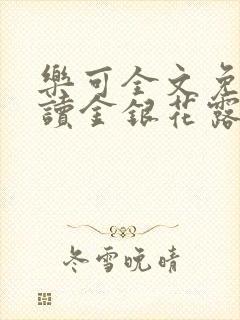 樂可全文免
讀金銀花露
冬雪晚晴